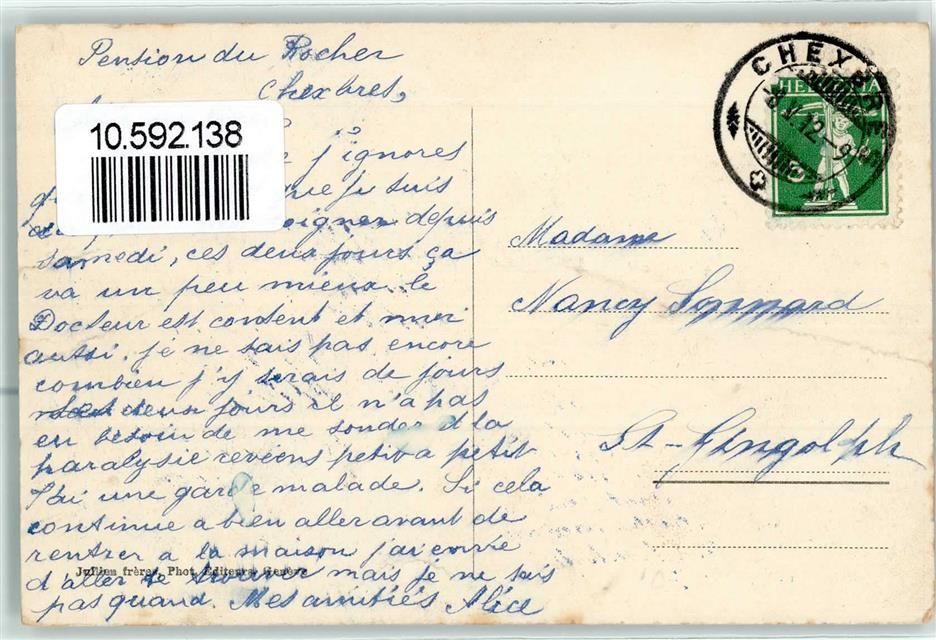 Pension du Rocher
Chexbres,
10.592.138
j'ignores
que je suis
soigner depuis
samedi, ces deux jours ça
va un peu mieux. le
Docteur est content et moi
aussi. je ne sais pas encore
combien j'y serais de jours
deux jours il n'a pas
eu besoin de me sonder d la
paralysie reviens petit a petit
J'ai une garde malade. Si cela
continue a bien aller avant de
rentrer a la maison j'ai envie
d'aller te trouver mais je ne sais
pas quand. Mes amitiés Alice
Jullien frères, Phot. Editeurs, Genève
CHEXBRES
V.12
HELVETIA
Madame
Nancy
St-Gingolph